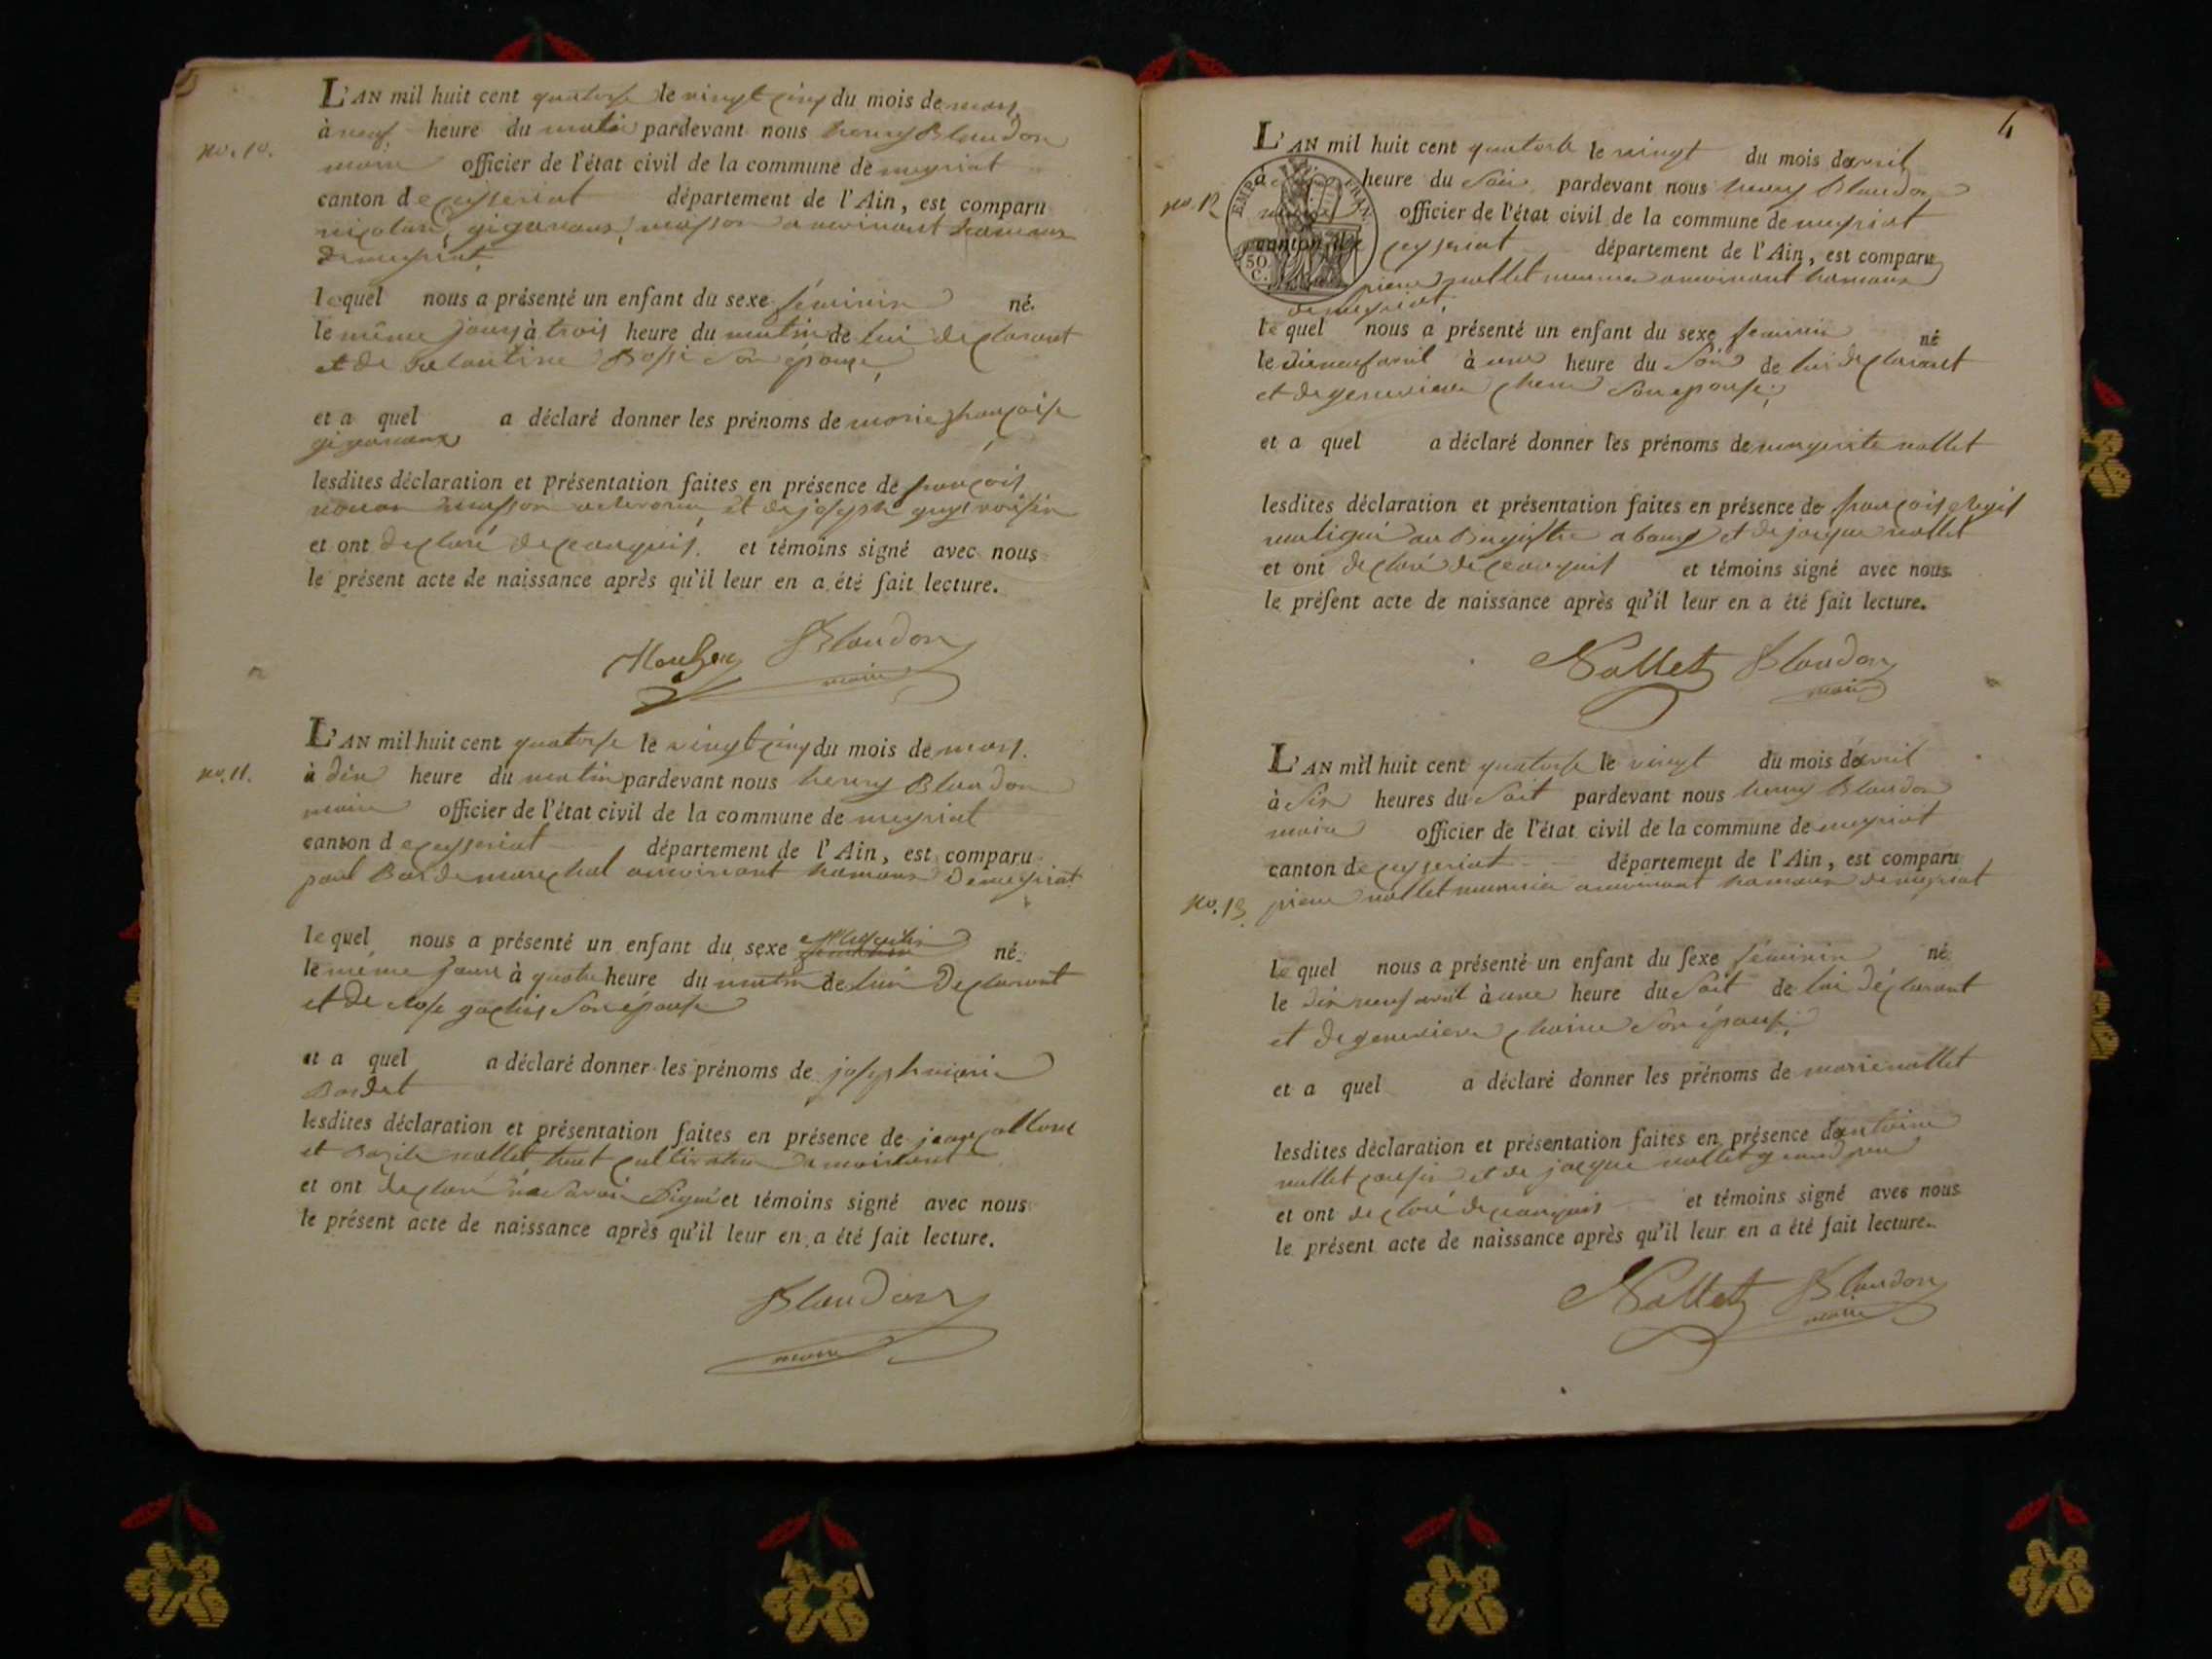 L'AN mil huit cent quatorse le vingt cinq du mois de mars
no. 10.
à neuf heure du matin pardevant nous henry Blaudon
maire officier de l'état civil de la commune de meyriat
canton de ceysseriat département de l'Ain, est comparu
masson hameau
de meyriat
lequel nous a présenté un enfant du sexe féminin né
le même jour à trois heure du matin de lui declarant
et de son épouse
et a quel a déclaré donner les prénoms de marie françoise
lesdites déclaration et présentation faites en présence de françois
masson et de joseph voisin
et ont declaré de ce anquis. et témoins signé avec nous
le présent acte de naissance après qu'il leur en a été fait lecture.
Blaudon
maire
L'AN mil huit cent quatorse le vingt cinq du mois de mars.
no. 11.
à dix heure du matin pardevant nous henry Blaudon
maire officier de l'état civil de la commune de meyriat
canton de ceysseriat département de l'Ain, est comparu
paul marechal hameau de meyriat
lequel nous a présenté un enfant du sexe né
le même jour à quatre heure du matin de lui declarant
et de rose son épouse
et a quel a déclaré donner les prénoms de joseph marie
Bordet
lesdites déclaration et présentation faites en présence de
et nallet tout cultivateur
et ont declaré ne savoir signé et témoins signé avec nous
le présent acte de naissance après qu'il leur en a été fait lecture.
Blaudon
maire
4
L'AN mil huit cent quatorse le vingt du mois davril
no. 12
à heure du soir pardevant nous henry Blaudon
maire officier de l'état civil de la commune de meyriat
canton de ceysseriat département de l'Ain, est comparu
EMP. FRAN.
50
C.
pierre nallet hameau
de meyriat.
le quel nous a présenté un enfant du sexe feminin né
le dixneuf avril à une heure du soir de lui declarant
et de genevieve son epouse
et a quel a déclaré donner les prénoms de margerite nallet
lesdites déclaration et présentation faites en présence de françois
a bourg et de jacque nallet
et ont declaré de ce anquis et témoins signé avec nous
le présent acte de naissance après qu'il leur en a été fait lecture.
Nallet Blaudon
maire
L'AN mil huit cent quatorse le vingt du mois davril
à six heures du soit pardevant nous henry Blaudon
maire officier de l'état civil de la commune de meyriat
canton de ceysseriat département de l'Ain, est comparu
no. 13. pierre nallet hameau de meyriat
le quel nous a présenté un enfant du sexe féminin né
le dix neuf avril à une heure du soit de lui déclarant
et de genevieve son épouse
et a quel a déclaré donner les prénoms de marie nallet
lesdites déclaration et présentation faites en présence dantoine
nallet cousin et de jacque nallet grand pere
et ont declaré de ce anquis et témoins signé avec nous
le présent acte de naissance après qu'il leur en a été fait lecture.
Nallet Blaudon
maire